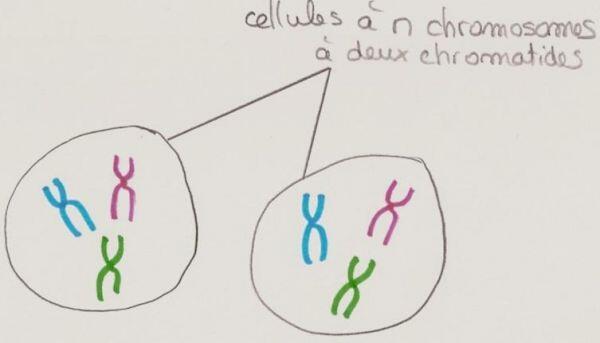 cellules à n chromosomes
à deux chromatides